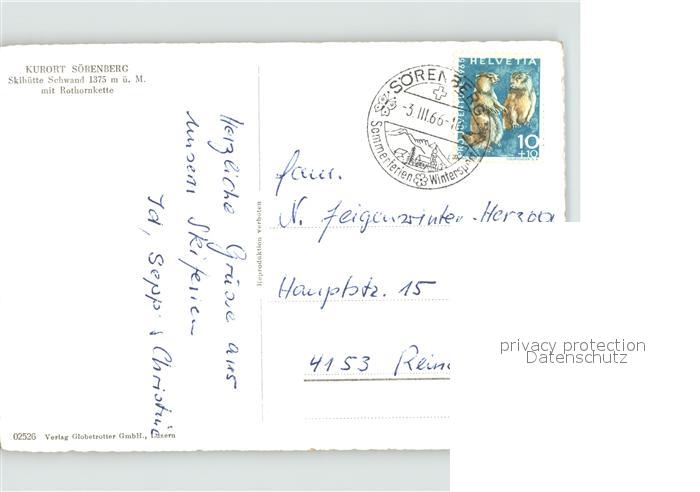 KURORT SÖRENBERG
Skihütte Schwand 1375 m ü. M.
mit Rothornkette
Herzliche Grüsse aus
unsern Skiferien
Id, Sepp & Christine
Reproduktion verboten
02526 Verlag Globetrotter GmbH., Luzern
SÖRENBERG
-3.III.66-1
Sommerferien Wintersport
HELVETIA
10
+10
Fam.
N. Feigenwinter-Herzog
Hauptstr. 15
4153 Rein
privacy protection
Datenschutz